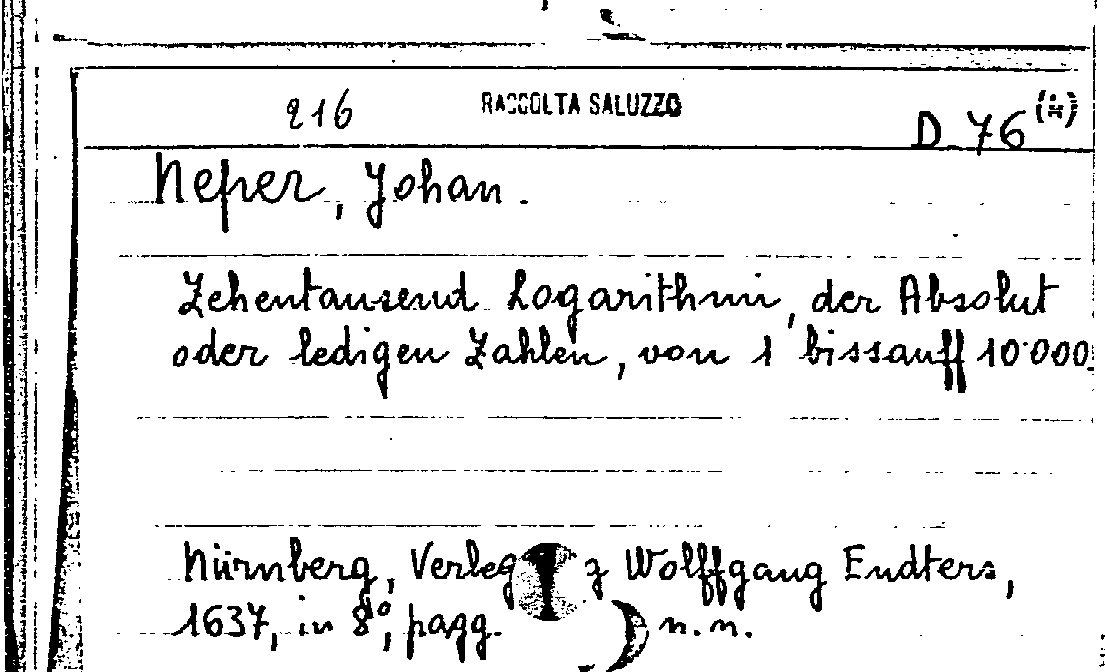 216 RACCOLTA SALUZZO D 76
Neper, Johan.
Zehentausend Logarithmi, der Absolut
oder ledigen Zahlen, von 1 bissauff 10000.
Nürnberg, Wolffgang Endters,
1637, in 8°, pagg. n.n.